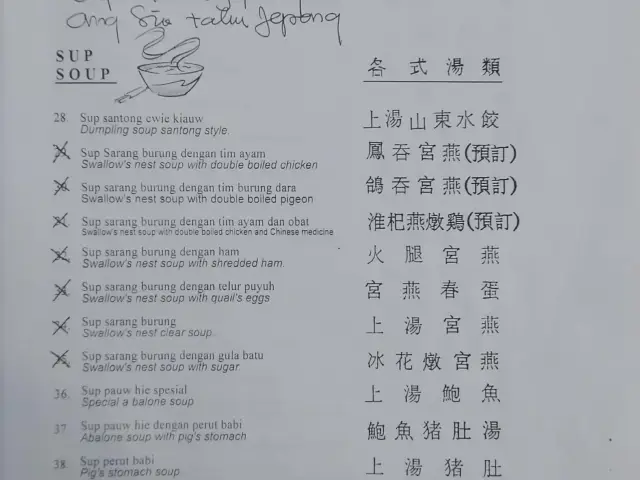 ang Sio tahu Jepang
SUP
SOUP
各式湯類
28. Sup santong cwie kiauw 上湯山東水餃
Dumpling soup santong style.
Sup Sarang burung dengan tim ayam 鳳吞宮燕(預訂)
Swallow's nest soup with double boiled chicken
Sup sarang burung dengan tim burung dara 鴿吞宮燕(預訂)
Swallow's nest soup with double boiled pigeon
Sup sarang burung dengan tim ayam dan obat 淮杞燕燉鷄(預訂)
Swallow's nest soup with double boiled chicken and Chinese medicine
Sup sarang burung dengan ham 火腿宮燕
Swallow's nest soup with shredded ham.
Sup sarang burung dengan telur puyuh 宮燕春蛋
Swallow's nest soup with quail's eggs
Sup sarang burung 上湯宮燕
Swallow's nest clear soup.
Sup sarang burung dengan gula batu 冰花燉宮燕
Swallow's nest soup with sugar
36. Sup pauw hie spesial 上湯鮑魚
Special a balone soup
37 Sup pauw hie dengan perut babi 鮑魚猪肚湯
Abalone soup with pig's stomach
38. Sup perut babi 上湯猪肚
Pig's stomach soup